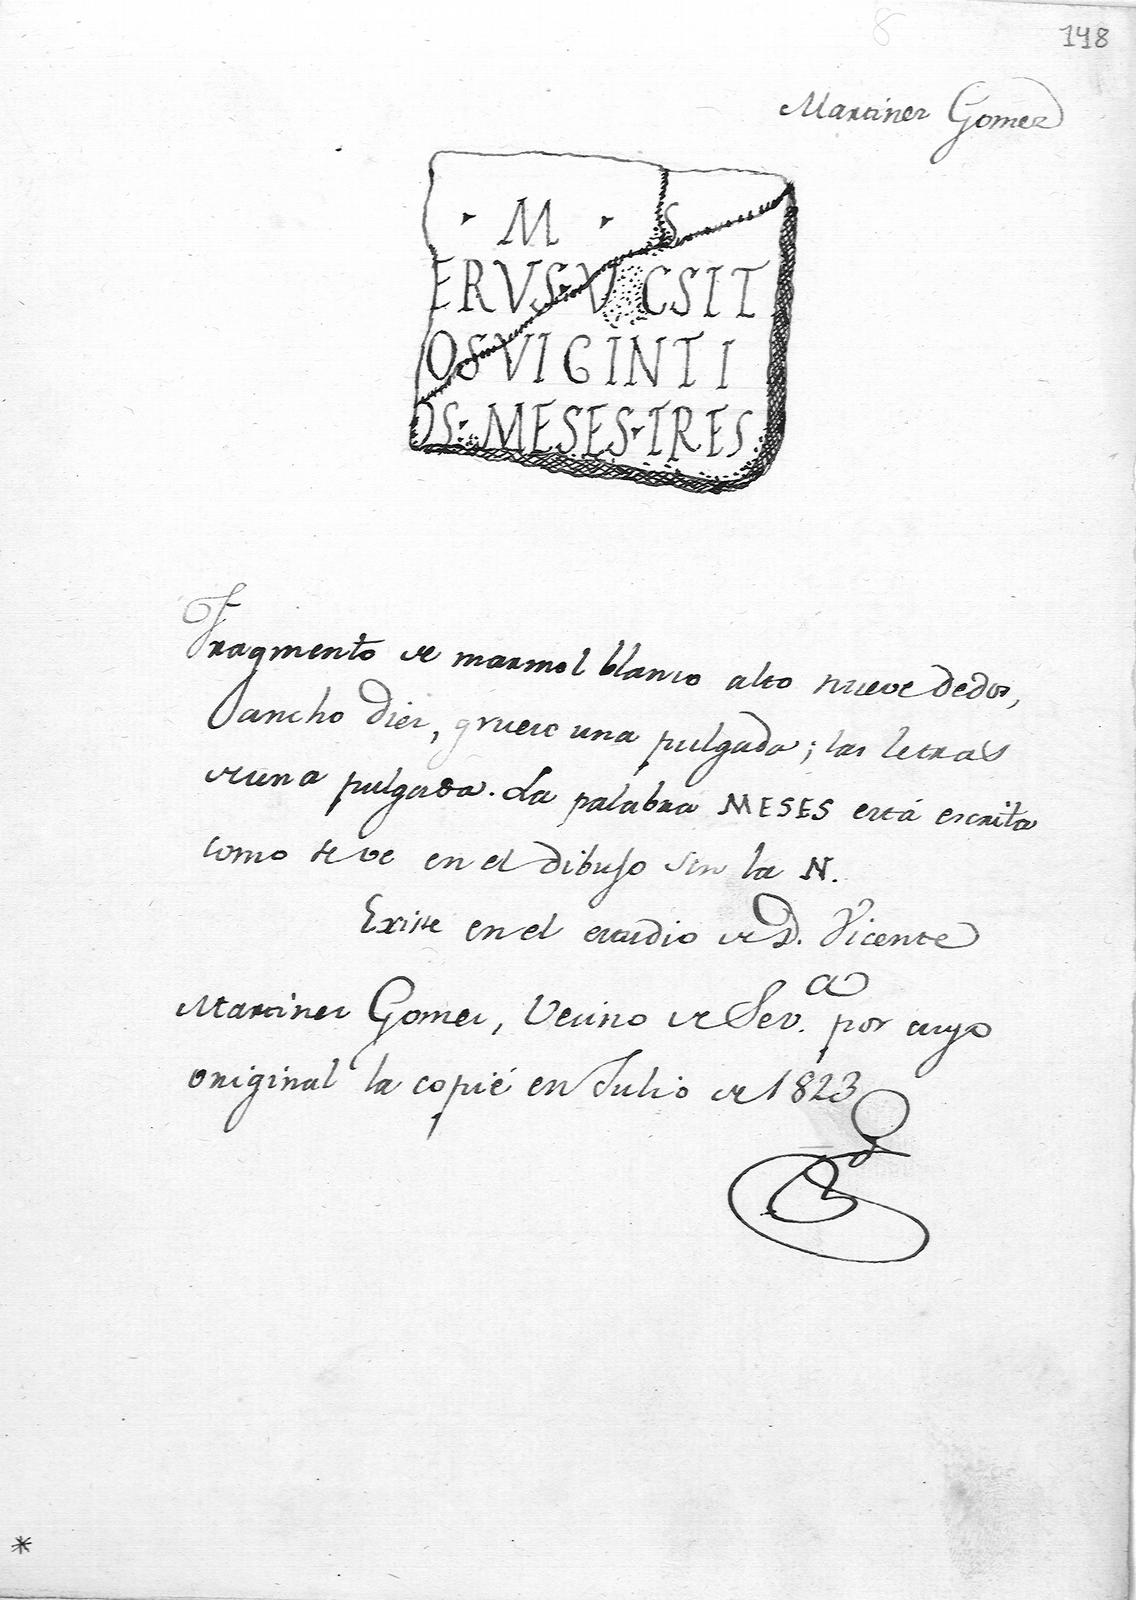 8
148
Martinez Gomez
· M · S
ERVS·V CSIT
OSVIGINTI
OS·MESES·TRES
Fragmento de marmol blanco alto nueve dedos,
ancho diez, grueso una pulgada; las letras
de una pulgada. La palabra MESES está escrita
como se ve en el dibujo sin la N.
Existe en el estudio de D. Vicente
Martinez Gomez, Vecino de Sev.a por cuyo
original la copié en Julio de 1823
*